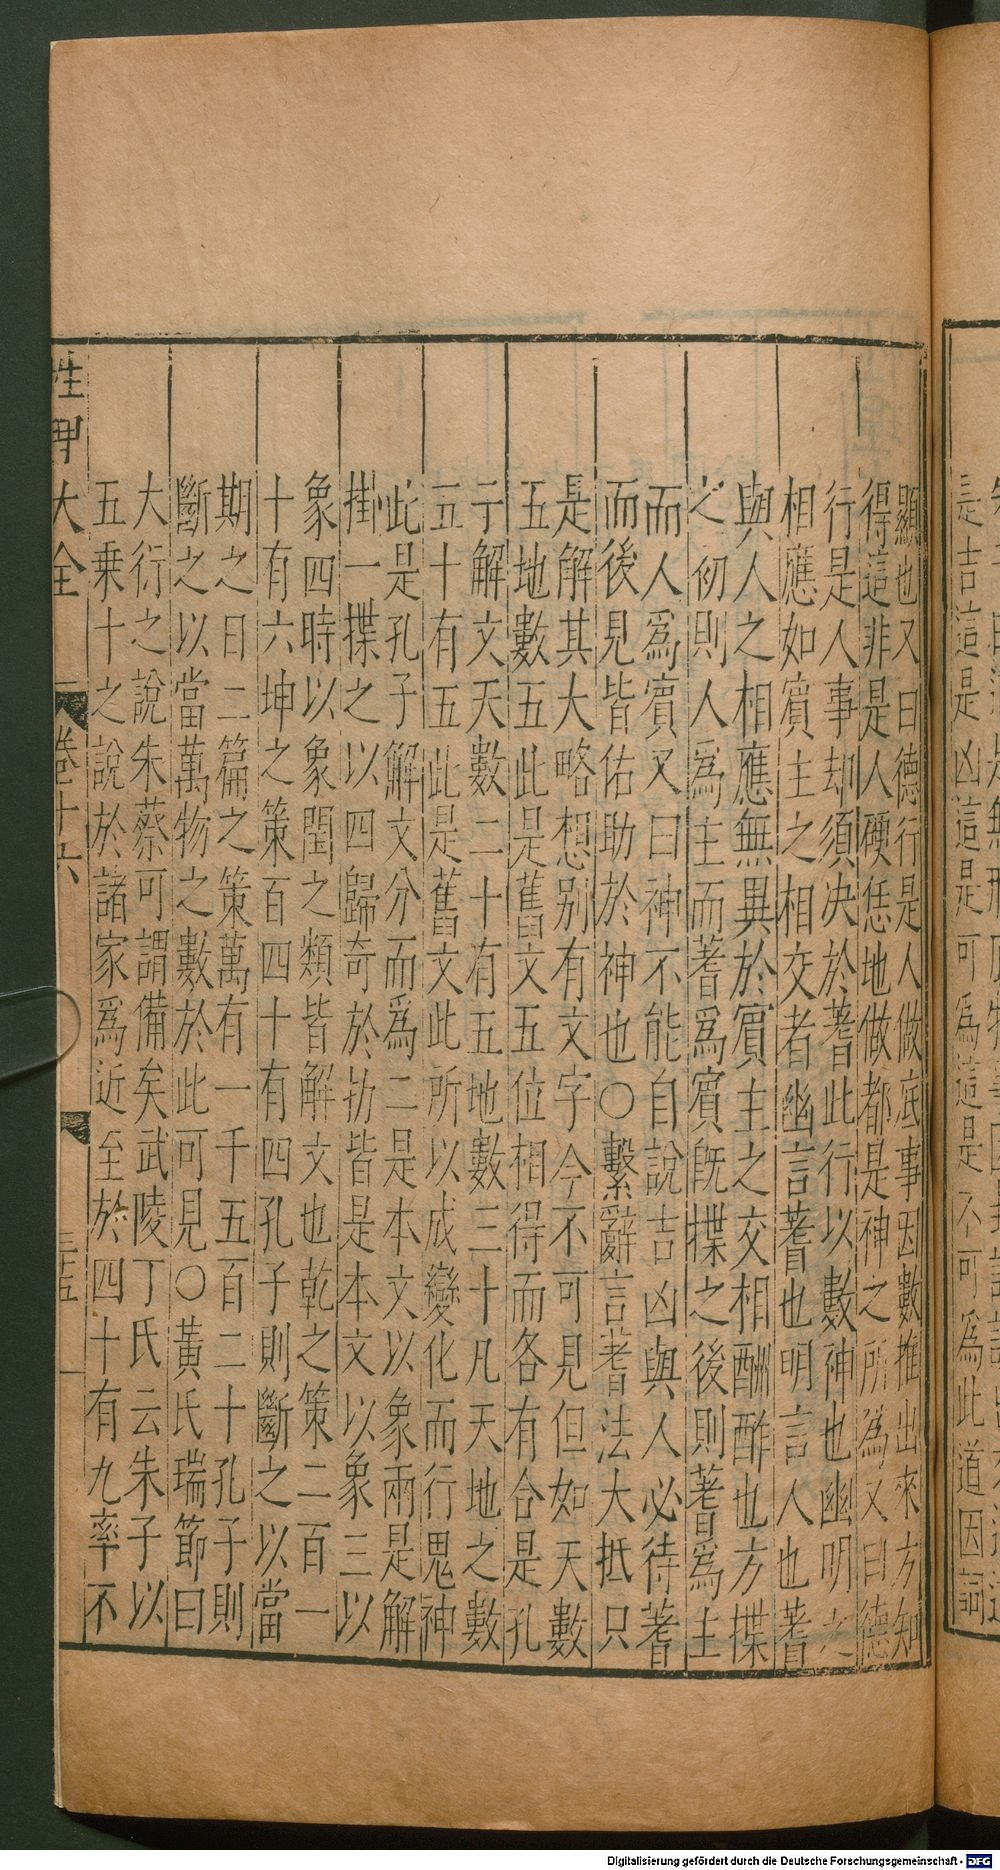 顯也又曰德行是人做底事因數推出來方知
得這非是人硬恁地做都是神之所為又曰德
行是人事却須决於蓍此行以數神也幽明之
相應如賔主之相交者幽言蓍也明言人也蓍
與人之相應無異於賔主之交相酬酢也方揲
之初則人爲主而蓍爲賔旣揲之後則蓍爲主
而人爲賔又曰神不能自說吉凶與人必待蓍
而後見皆佑助於神也○繫辭言蓍法大抵只
是解其大略想别有文字今不可見但如天數
五地數五此是舊文五位相得而各有合是孔
子解文天數二十有五地數三十凡天地之數
五十有五此是舊文此所以成變化而行鬼神
此是孔子解文分而爲二是本文以象兩是解
掛一揲之以四歸奇於扐皆是本文以象三以
象四時以象閏之類皆解文也乾之策二百一
十有六坤之策百四十有四孔子則斷之以當
期之日二篇之策萬有一千五百二十孔子則
斷之以當萬物之數於此可見○黃氏瑞節曰
大衍之說朱蔡可謂備矣武陵丁氏云朱子以
五乗十之說於諸家爲近至於四十有九率不
性理大全
卷十六
三十五
是吉這是凶這是可為這是不可為此道因詞
Digitalisierung gefördert durch die Deutsche Forschungsgemeinschaft - DFG